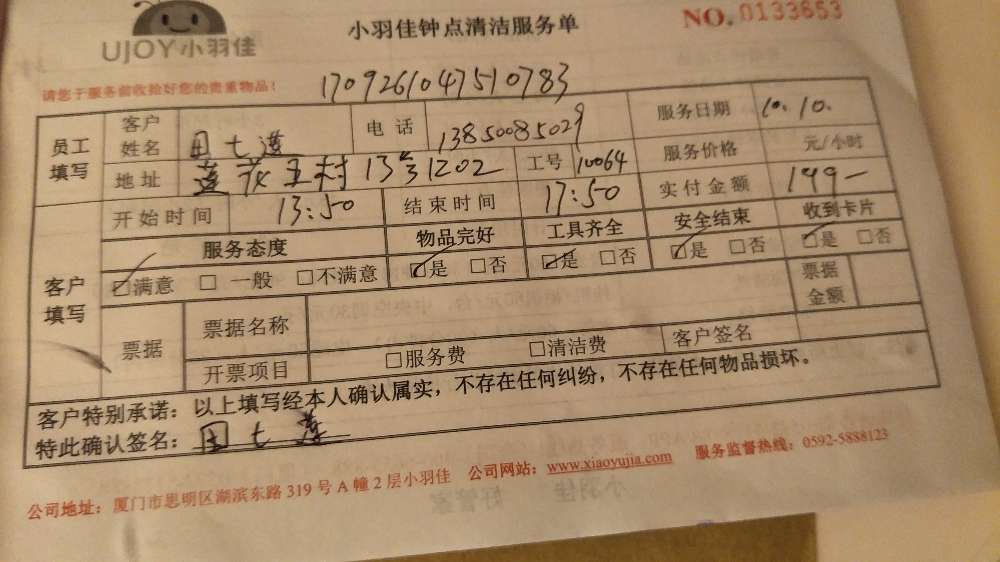 UJOY小羽佳
小羽佳钟点清洁服务单
NO. 0133653
请您于服务前收拾好您的贵重物品!
170926104751０783
员工填写 客户姓名 田七莲 电话 13850085029 服务日期 10.10.
地址 莲花五村13号1202 工号 10064 服务价格 元/小时
客户填写 开始时间 13:50 结束时间 17:50 实付金额 149-
服务态度 物品完好 工具齐全 安全结束 收到卡片
☑满意 □一般 □不满意 ☑是 □否 ☑是 □否 ☑是 □否 ☑是 □否
票据 票据名称 票据金额
开票项目 □服务费 □清洁费 客户签名
客户特别承诺：以上填写经本人确认属实，不存在任何纠纷，不存在任何物品损坏。
特此确认签名：田七莲
公司地址：厦门市思明区湖滨东路319号A幢2层小羽佳 公司网站：www.xiaoyujia.com 服务监督热线：0592-5888123